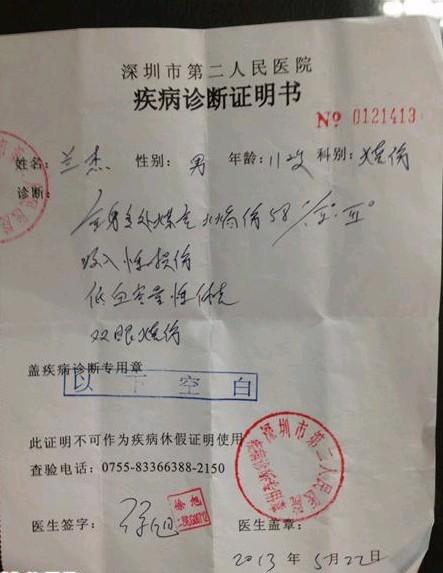 深圳市第二人民医院
疾病诊断证明书
№ 0121413
姓名: 兰杰 性别: 男 年龄: 11岁 科别: 烧伤
诊断:
全身多处煤气火焰伤58% Ⅱ°Ⅲ°
吸入性损伤
低血容量性休克
双眼烧伤
盖疾病诊断专用章
以下空白
此证明不可作为疾病休假证明使用
查验电话: 0755-83366388-2150
深圳市第二人民医院
医生签字: 徐旭
医生盖章:
2013 年 5月22日